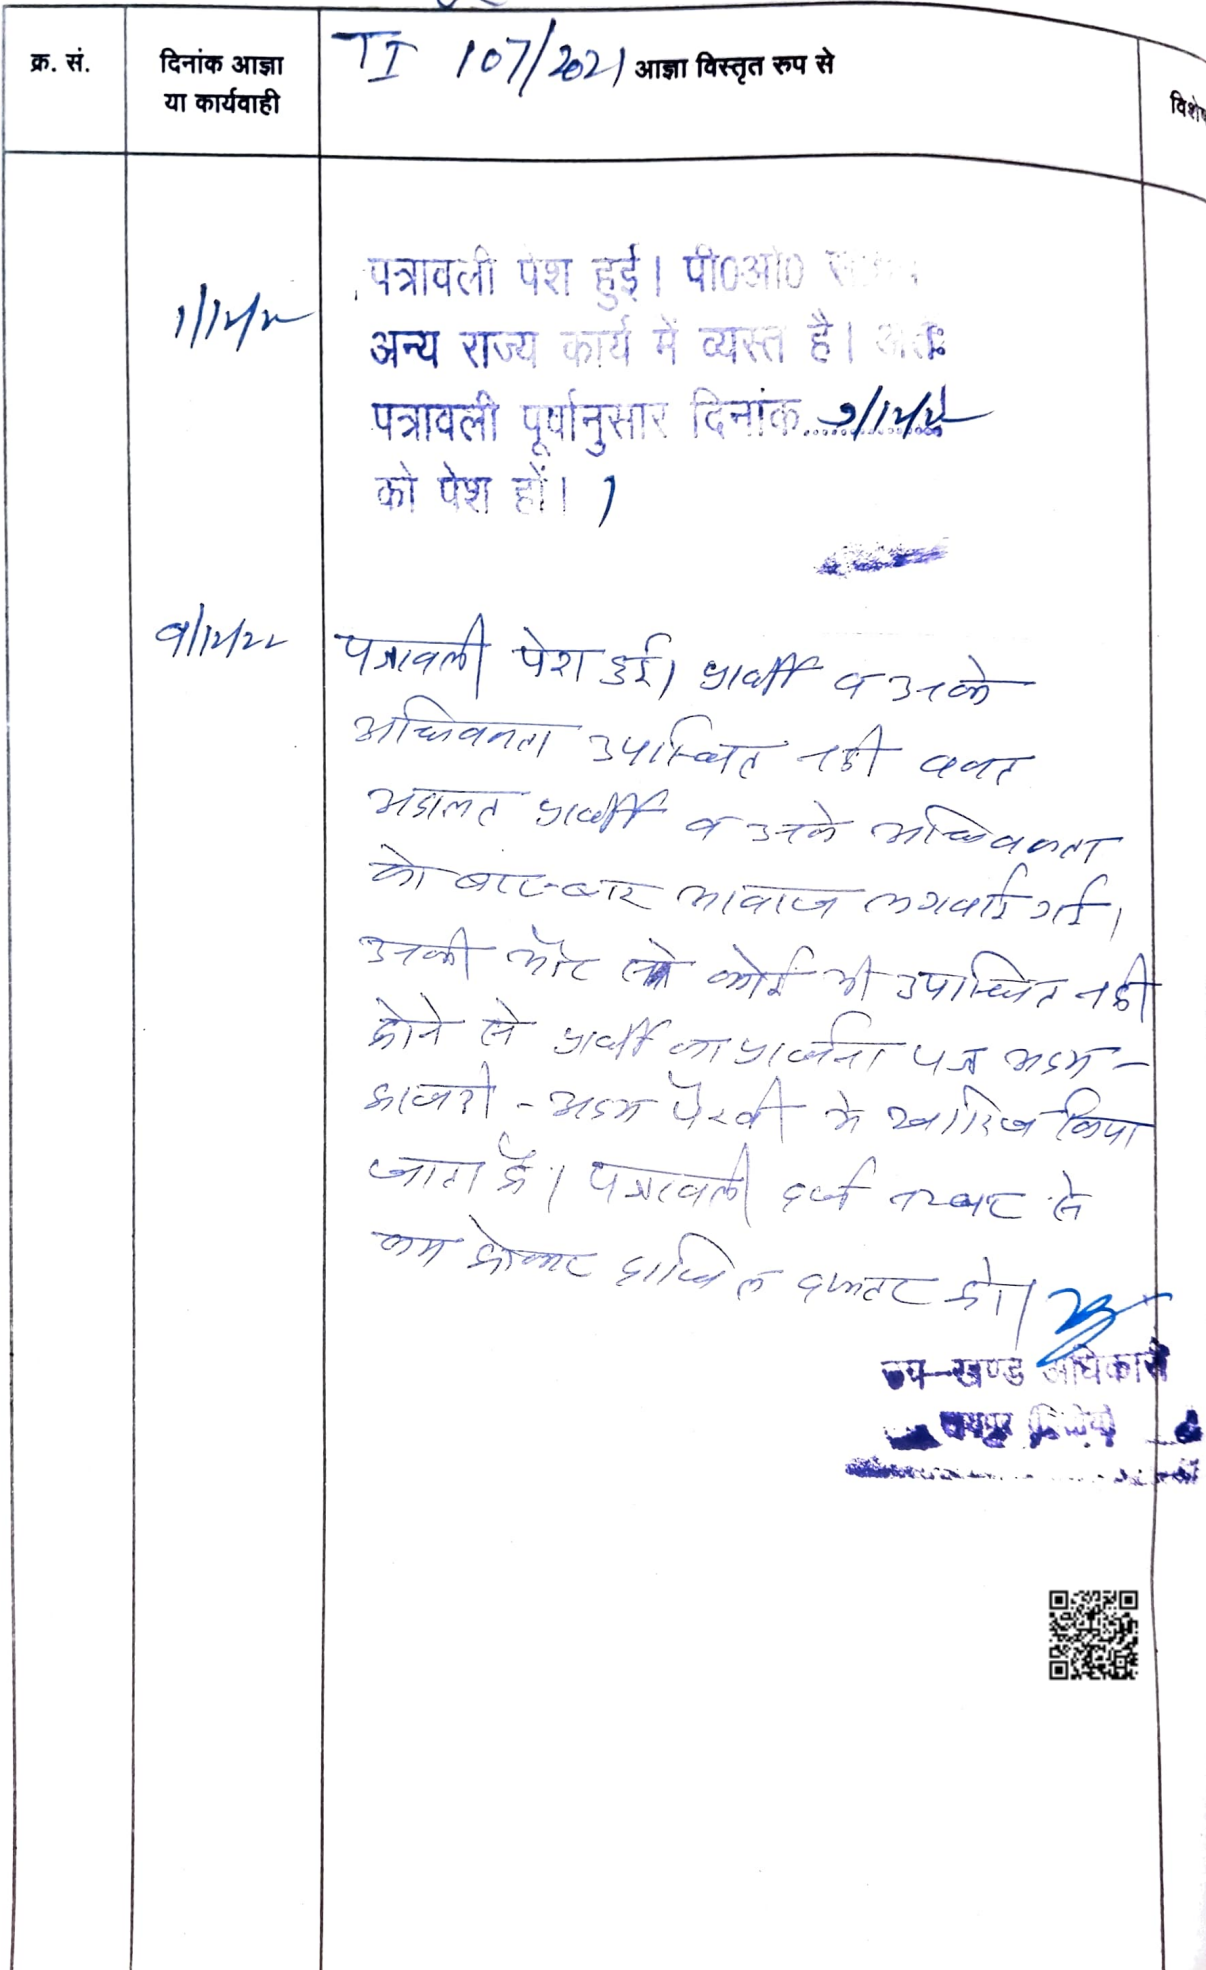 TI 107/2021
क्र. सं. दिनांक आज्ञा या कार्यवाही आज्ञा विस्तृत रुप से विशे
1/12/22
पत्रावली पेश हुई। पी0ओ0
अन्य राज्य कार्य में व्यस्त है। अतः
पत्रावली पूर्वानुसार दिनांक 9/12/22
को पेश हों।
9/12/22
पत्रावली पेश हुई। प्रार्थी व उनके
अधिवक्ता उपस्थित नही वक्त
अदालत प्रार्थी व उनके अधिवक्ता
को बार-बार आवाज लगवाई गई।
उनकी ओर से कोई भी उपस्थित नही
होने से प्रार्थी का प्रार्थना पत्र अदम -
हाजरी - अदम पैरवी मे खारिज किया
जाता है। पत्रावली दर्ज नम्बर से
कम होकर दाखिल दफ्तर हो।
उप-खण्ड अधिकारी